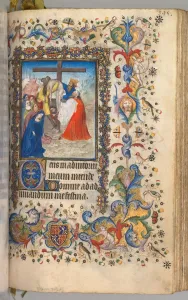 Deus in adiutorium
meum intende
Domine ad ad
iuvandum me festina